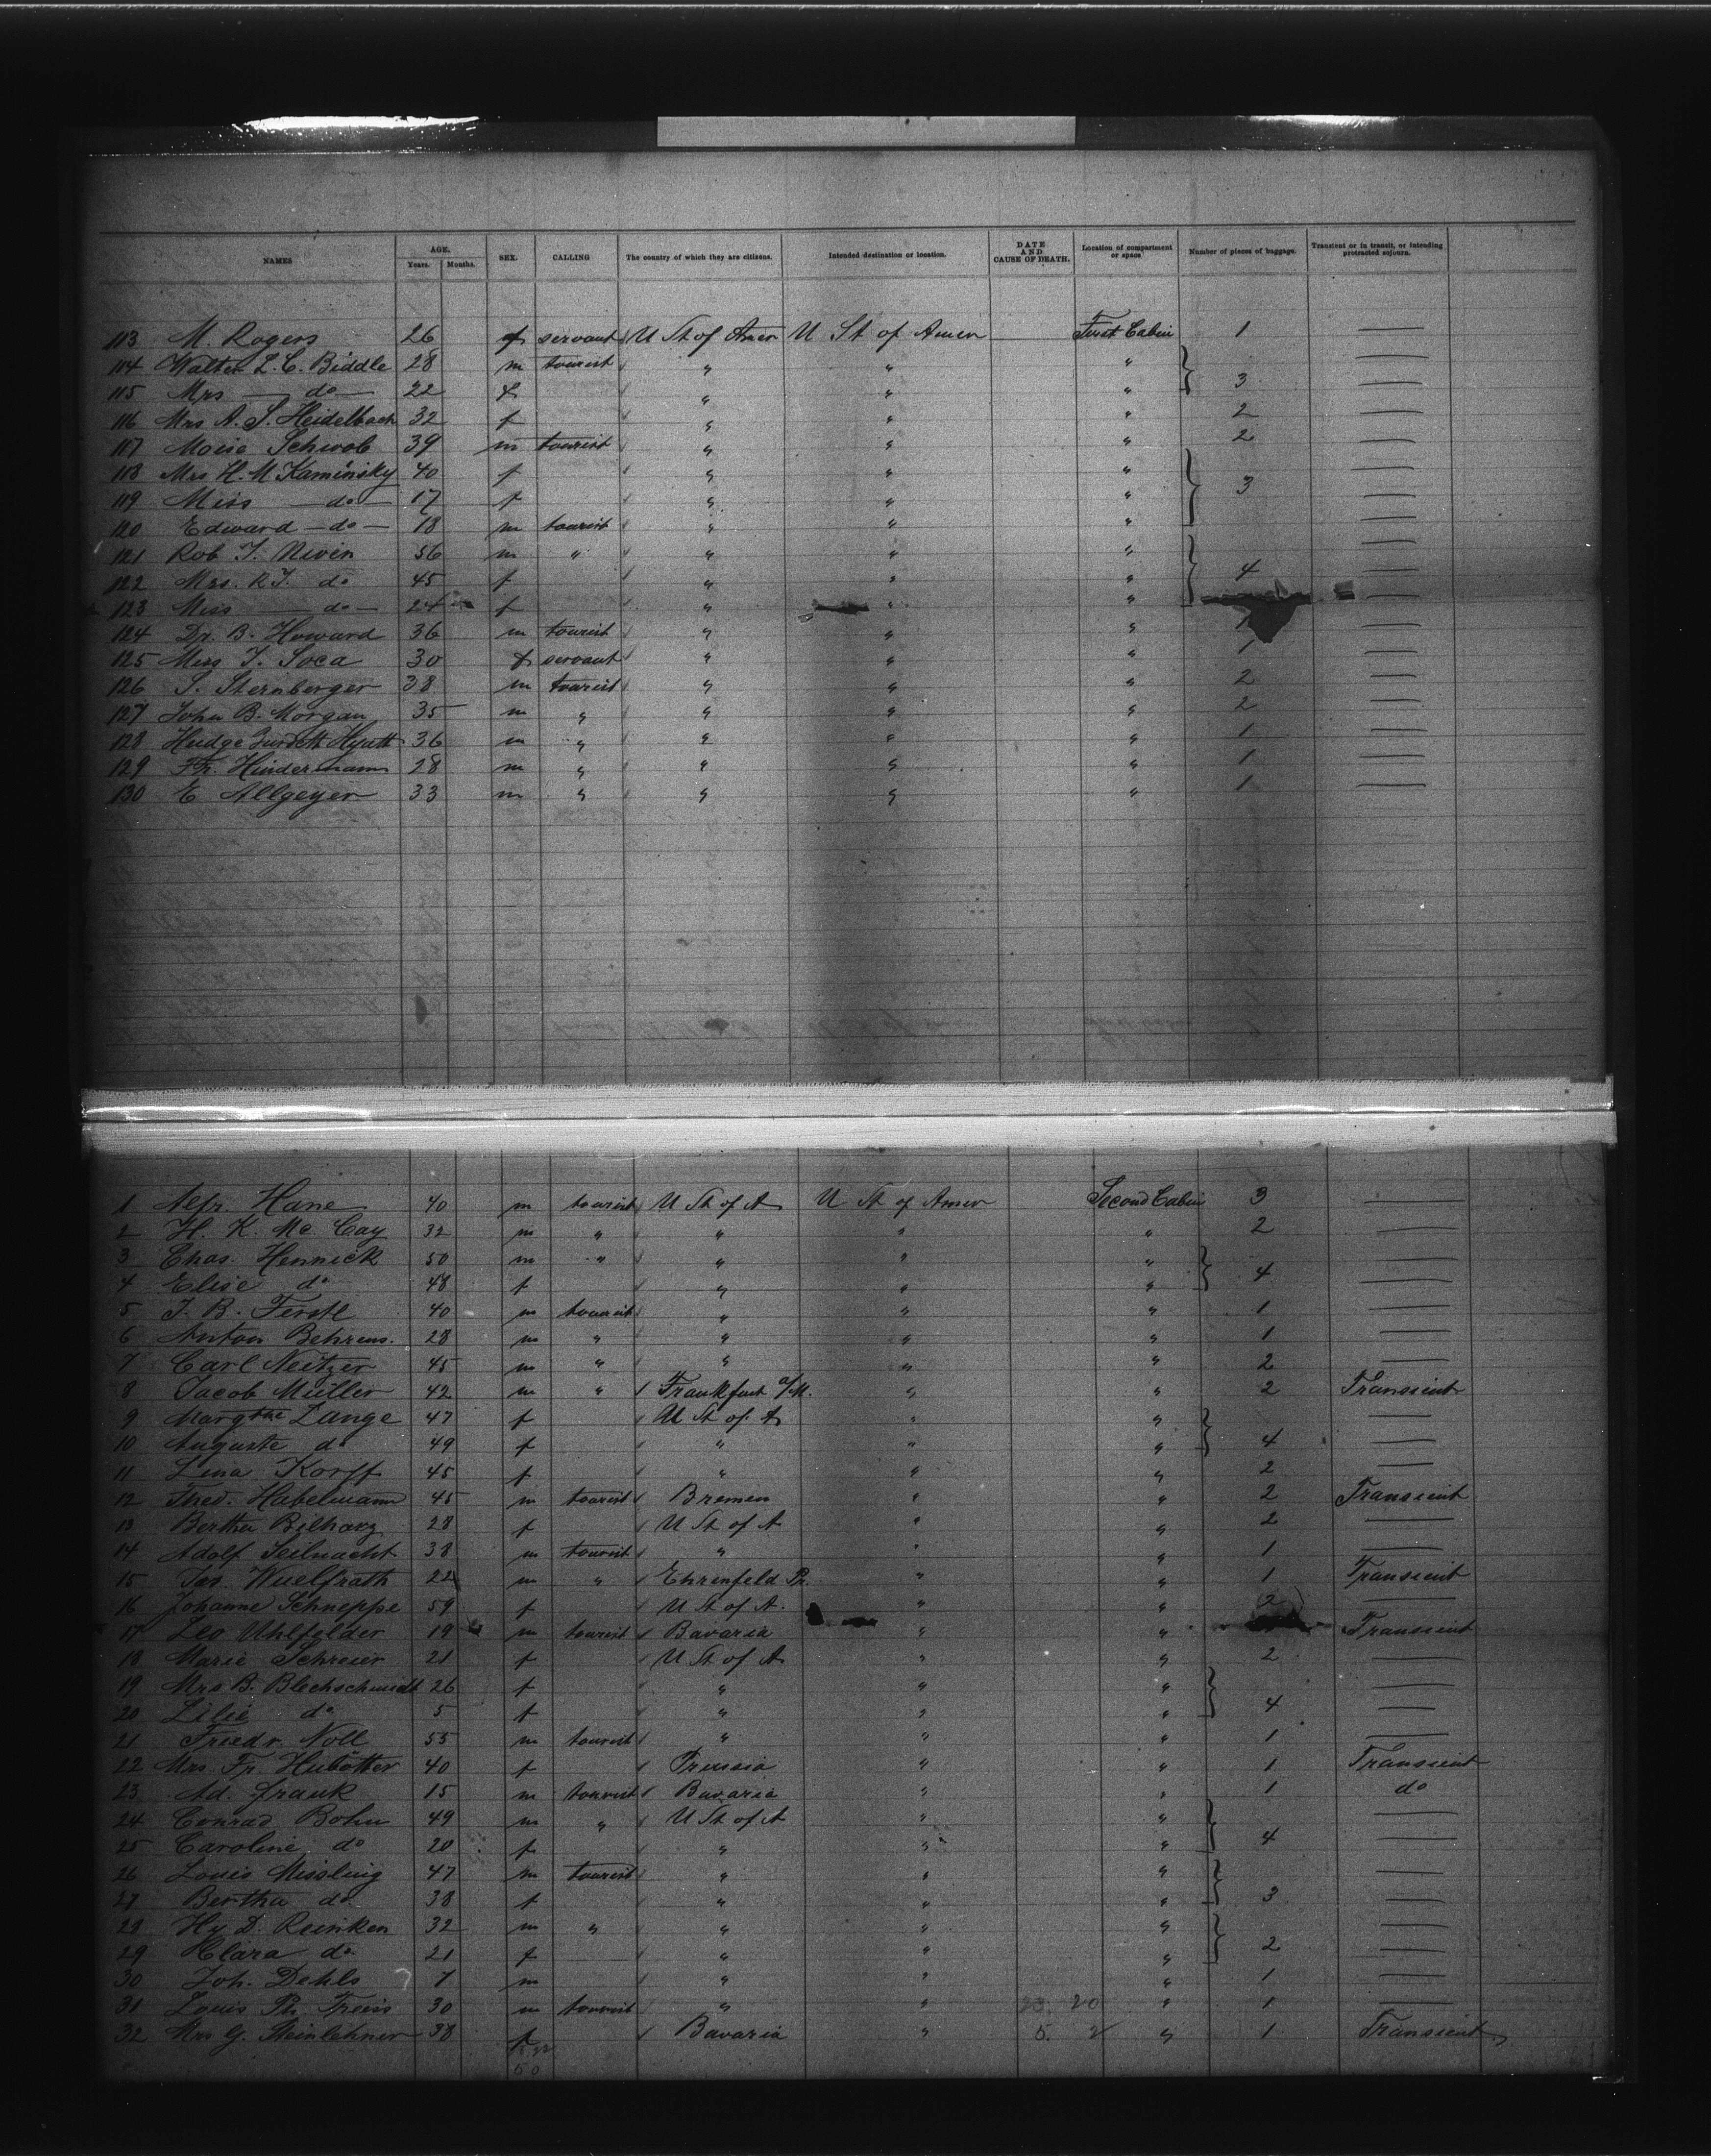 NAMES AGE. Years. Months. SEX. CALLING The country of which they are citizens. Intended destination or location. DATE AND CAUSE OF DEATH. Location of compartment or space Number of pieces of baggage. Transient or in transit, or intending protracted sojourn.
113 M. Rogers 26 f servant U St of Amer U St of Amer First Cabin 1 —
114 Walter L. C. Biddle 28 m tourist " " " —
115 Mrs — do — 22 f " " " 3 —
116 Mrs A. S. Heidelbach 32 f " " " 2 —
117 Moise Schwob 39 m tourist " " " 2 —
118 Mrs H. M Kaminsky 40 f " " " —
119 Miss — do — 17 f " " " 3 —
120 Edward — do — 18 m tourist " " " —
121 Rob T. Niven 56 m " " " " —
122 Mrs. R T. do 45 f " " " 4 —
123 Miss — do — 24 f " " "
124 Dr. B. Howard 36 m tourist " " " 1 —
125 Miss T. Soca 30 f servant " " " 1 —
126 S. Sternberger 38 m tourist " " " 2 —
127 John B. Morgan 35 m " " " " 2 —
128 Hyatt 36 m " " " " 1 —
129 Fr. Hindermann 28 m " " " " 1 —
130 E Allgeyer 33 m " " " " 1 —
1 Alfr. Hane 40 m tourist U St of A U St of Amer Second Cabin 3 —
2 H. K. Mc. Cay 32 m " " " " 2 —
3 Chas. Hennick 50 m " " " " —
4 Elise do 48 f " " " 4 —
5 J. B. Ferstl 40 m tourist " " " 1 —
6 Anton Behrens. 28 m " " " " 1 —
7 Carl Neitzer 45 m " " " " 2 —
8 Jacob Müller 42 m " Frankfurt a/M. " " 2 Transient
9 Margthe Lange 47 f U St of A " " —
10 Auguste do 49 f " " " 4 —
11 Lina Korff 45 f " " " 2 —
12 Thed. Habelmann 45 m tourist Bremen " " 2 Transient
13 Bertha Bilharz 28 f U St of A " " 2 —
14 Adolf Seilnacht 38 m tourist " " " 1 —
15 Jos. Wuelfrath 22 m " Ehrenfeld Pr. " " 1 Transient
16 Johanne Schneppe 59 f U St of A. " " 2 —
17 Leo Uhlfelder 19 m tourist Bavaria " " Transient
18 Marie Schreier 21 f U St of A " " 2 —
19 Mrs B. Blechschmidt 26 f " " " —
20 Lilie do 5 f " " " 4 —
21 Friedr. Noll 55 m tourist " " " 1 —
22 Mrs. Fr. Hubötter 40 f Prussia " " 1 Transient
23 Ad. Frank 15 m tourist Bavaria " " 1 do
24 Conrad Bohn 49 m " U St of A " " —
25 Caroline do 20 f " " " 4 —
26 Louis Missling 47 m tourist " " " —
27 Bertha do 38 f " " " 3 —
28 Hy D. Reinken 32 m " " " " —
29 Clara do 21 f " " " 2 —
30 Joh. Dehls 7 m " " " 1 —
31 Louis Ph. Freiss 30 m tourist " " 23. 20 " 1 —
32 Mrs G. Steinlehner 38 f Bavaria " 5. 2 " 1 Transient